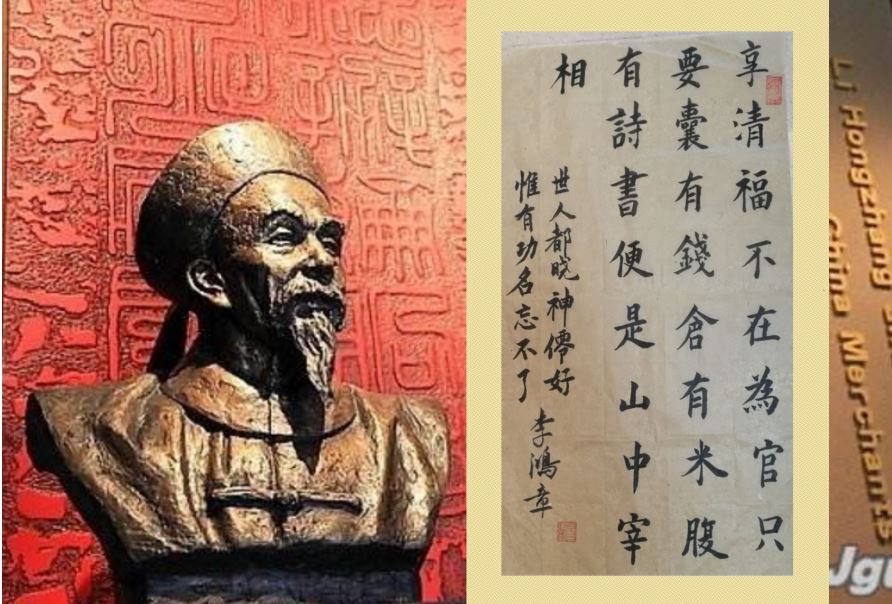 享清福不在為官只
要囊有錢倉有米腹
有詩書便是山中宰
相
世人都晓神僊好
惟有功名忘不了
李鴻章
Li Hongzhang
China Merchants
Jgu